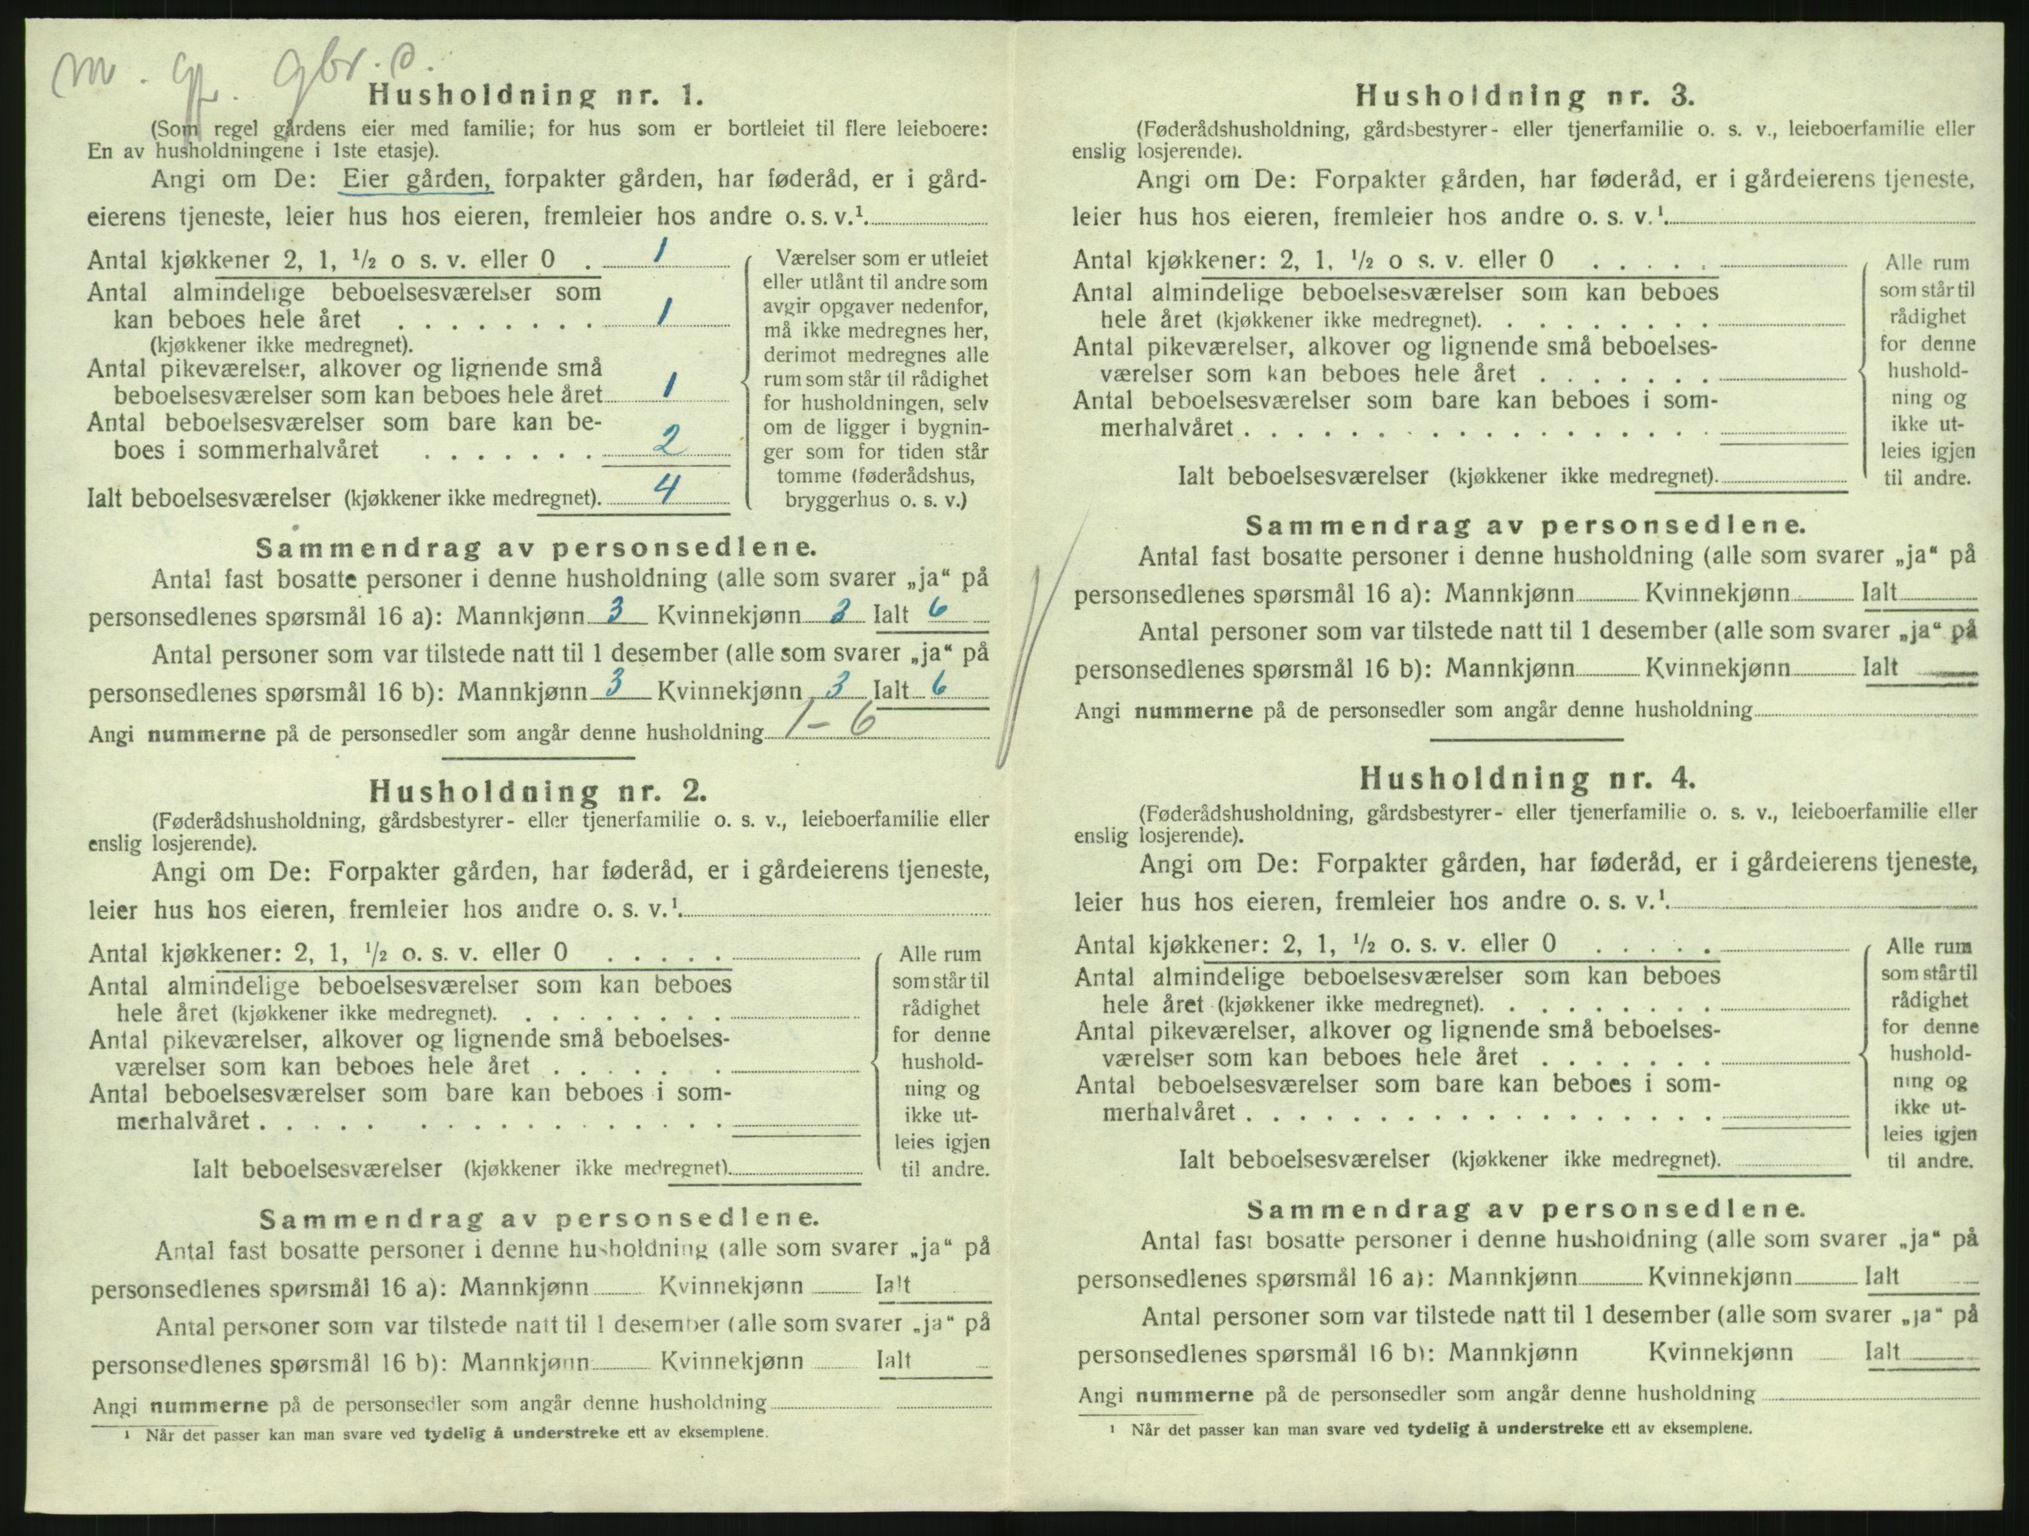 m. gf. gbr. s.
Husholdning nr. 1.
(Som regel gårdens eier med familie; for hus som er bortleiet til flere leieboere:
En av husholdningene i 1ste etasje).
Angi om De: Eier gården, forpakter gården, har føderåd, er i gård-
eierens tjeneste, leier hus hos eieren, fremleier hos andre o. s. v.¹
Antal kjøkkener 2, 1, ½ o s. v. eller 0 . 1
Antal almindelige beboelsesværelser som
kan beboes hele året . . . . . . . . 1
(kjøkkener ikke medregnet).
Antal pikeværelser, alkover og lignende små
beboelsesværelser som kan beboes hele året 1
Antal beboelsesværelser som bare kan be-
boes i sommerhalvåret . . . . . . . 2
Ialt beboelsesværelser (kjøkkener ikke medregnet). 4
Værelser som er utleiet
eller utlånt til andre som
avgir opgaver nedenfor,
må ikke medregnes her,
derimot medregnes alle
rum som står til rådighet
for husholdningen, selv
om de ligger i bygnin-
ger som for tiden står
tomme (føderådshus,
bryggerhus o. s. v.)
Sammendrag av personsedlene.
Antal fast bosatte personer i denne husholdning (alle som svarer „ja“ på
personsedlenes spørsmål 16 a): Mannkjønn 3 Kvinnekjønn 3 Ialt 6
Antal personer som var tilstede natt til 1 desember (alle som svarer „ja“ på
personsedlenes spørsmål 16 b): Mannkjønn 3 Kvinnekjønn 3 Ialt 6
Angi nummerne på de personsedler som angår denne husholdning 1 - 6
Husholdning nr. 2.
(Føderådshusholdning, gårdsbestyrer- eller tjenerfamilie o. s. v., leieboerfamilie eller
enslig losjerende).
Angi om De: Forpakter gården, har føderåd, er i gårdeierens tjeneste,
leier hus hos eieren, fremleier hos andre o. s. v.¹.
Antal kjøkkener: 2, 1, ½ o. s. v. eller 0 . . . . .
Antal almindelige beboelsesværelser som kan beboes
hele året (kjøkkener ikke medregnet). . . . . . . . .
Antal pikeværelser, alkover og lignende små beboelses-
værelser som kan beboes hele året . . . . . .
Antal beboelsesværelser som bare kan beboes i som-
merhalvåret . . . . . . . . . . . . . . . .
Ialt beboelsesværelser (kjøkkener ikke medregnet).
Alle rum
som står til
rådighet
for denne
hushold-
ning og
ikke ut-
leies igjen
til andre.
Sammendrag av personsedlene.
Antal fast bosatte personer i denne husholdning (alle som svarer „ja“ på
personsedlenes spørsmål 16 a): Mannkjønn Kvinnekjønn Ialt
Antal personer som var tilstede natt til 1 desember (alle som svarer „ja“ på
personsedlenes spørsmål 16 b): Mannkjønn Kvinnekjønn Ialt
Angi nummerne på de personsedler som angår denne husholdning
¹ Når det passer kan man svare ved tydelig å understreke ett av eksemplene.
Husholdning nr. 3.
(Føderådshusholdning, gårdsbestyrer- eller tjenerfamilie o. s. v., leieboerfamilie eller
enslig losjerende).
Angi om De: Forpakter gården, har føderåd, er i gårdeierens tjeneste,
leier hus hos eieren, fremleier hos andre o. s. v.¹.
Antal kjøkkener: 2, 1, ½ o s. v. eller 0 . . . . .
Antal almindelige beboelsesværelser som kan beboes
hele året (kjøkkener ikke medregnet). . . . . . . . .
Antal pikeværelser, alkover og lignende små beboelses-
værelser som kan beboes hele året . . . . . . .
Antal beboelsesværelser som bare kan beboes i som-
merhalvåret . . . . . . . . . . . . . . . . .
Ialt beboelsesværelser (kjøkkener ikke medregnet).
Alle rum
som står til
rådighet
for denne
hushold-
ning og
ikke ut-
leies igjen
til andre.
Sammendrag av personsedlene.
Antal fast bosatte personer i denne husholdning (alle som svarer „ja“ på
personsedlenes spørsmål 16 a): Mannkjønn Kvinnekjønn Ialt
Antal personer som var tilstede natt til 1 desember (alle som svarer „ja“ på
personsedlenes spørsmål 16 b): Mannkjønn Kvinnekjønn Ialt
Angi nummerne på de personsedler som angår denne husholdning
Husholdning nr. 4.
(Føderådshusholdning, gårdsbestyrer- eller tjenerfamilie o. s. v., leieboerfamilie eller
enslig losjerende).
Angi om De: Forpakter gården, har føderåd, er i gårdeierens tjeneste,
leier hus hos eieren, fremleier hos andre o. s. v.¹.
Antal kjøkkener: 2, 1, ½ o. s. v. eller 0 . . . . .
Antal almindelige beboelsesværelser som kan beboes
hele året (kjøkkener ikke medregnet). . . . . . . . .
Antal pikeværelser, alkover og lignende små beboelses-
værelser som kan beboes hele året . . . . . . .
Antal beboelsesværelser som bare kan beboes i som-
merhalvåret . . . . . . . . . . . . . . . . . .
Ialt beboelsesværelser (kjøkkener ikke medregnet).
Alle rum
som står til
rådighet
for denne
hushold-
ning og
ikke ut-
leies igjen
til andre.
Sammendrag av personsedlene.
Antal fast bosatte personer i denne husholdning (alle som svarer „ja“ på
personsedlenes spørsmål 16 a): Mannkjønn Kvinnekjønn Ialt
Antal personer som var tilstede natt til 1 desember (alle som svarer „ja“ på
personsedlenes spørsmål 16 b): Mannkjønn Kvinnekjønn Ialt
Angi nummerne på de personsedler som angår denne husholdning
¹ Når det passer kan man svare ved tydelig å understreke ett av eksemplene.